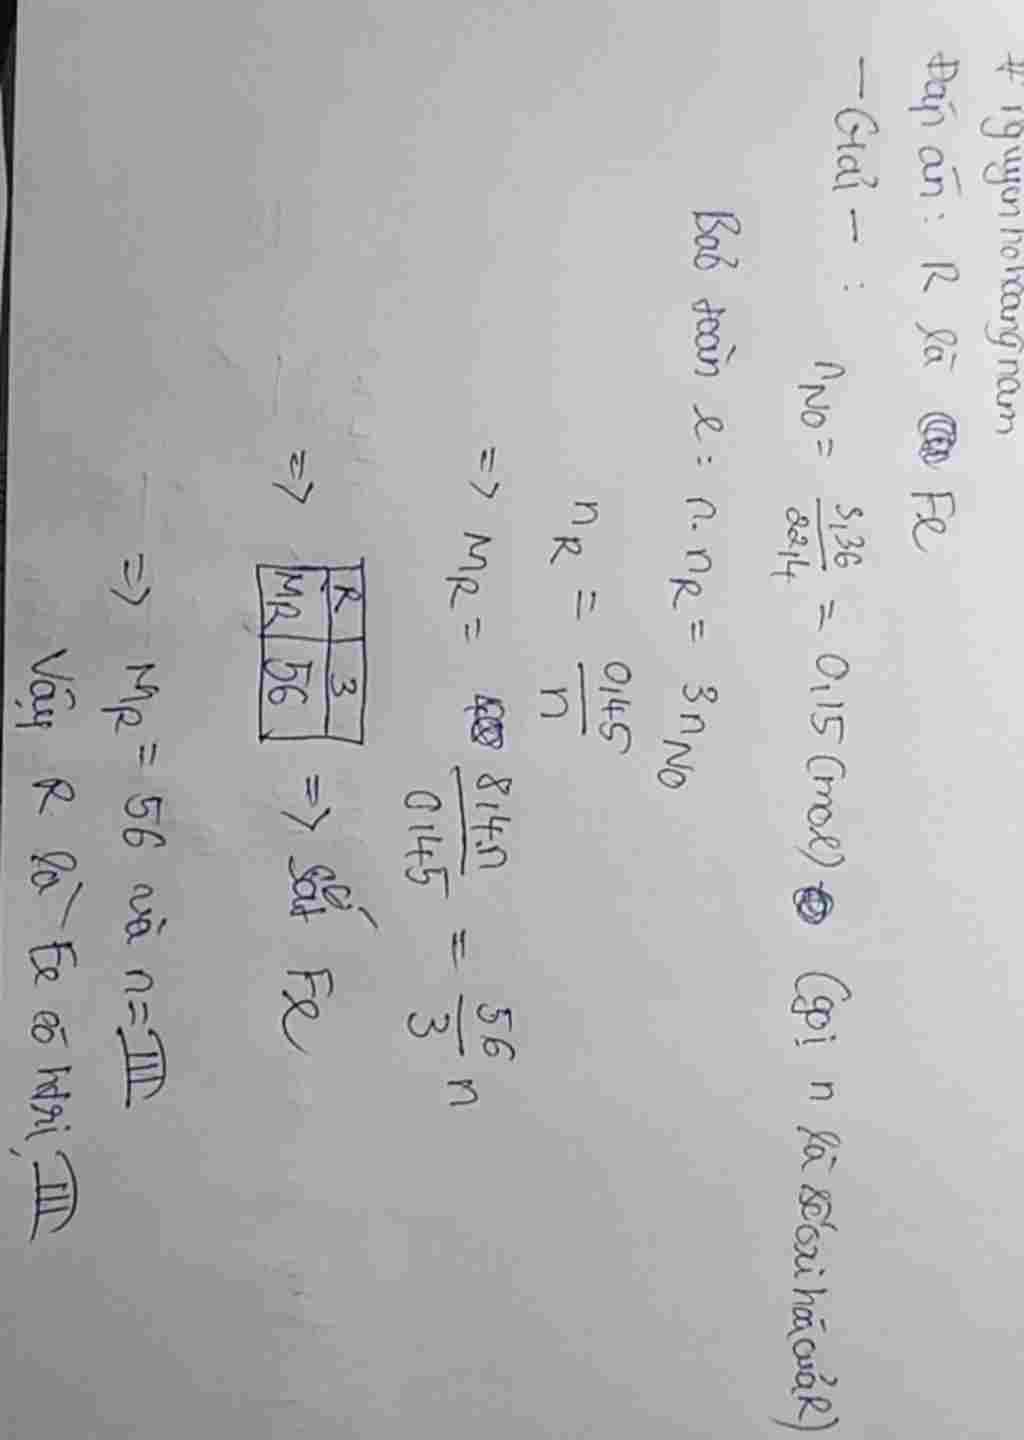 # nguyenhohoangnam
Đáp án: R là Fe
- Giải - : nNO = 3,36/22,4 = 0,15 (mol) (gọi n là số oxi hóa của R)
Bảo toàn e: n.nR = 3nNO
nR = 0,45/n
=> MR = 8,4.n/0,45 = 56/3 n
=> R 3
MR 56 => sắt Fe
=> MR = 56 và n = III
Vậy R là Fe có htri III